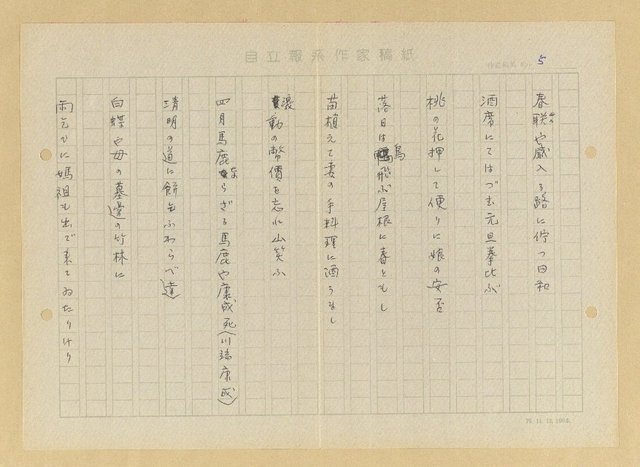 自立報系作家稿紙
5
春聯や蔵入る路に佇つ日和
酒席にてはづむ元旦拳比ぶ
桃の花押して便りに娘の安否
落日は鳥飛ぶ屋根に春ともし
苗植えて妻の手料理に酒うまし
滾動の幣價を忘れ山笑ふ
四月馬鹿ならざる馬鹿や康成死(川端康成)
清明の道に餅をふわらべ達
白蝶や母の墓邊の竹林に
雨乞に媽祖も出で来てゐたりけり